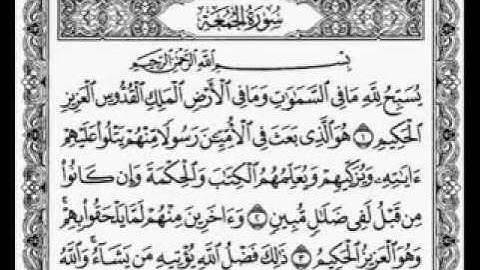 سُورَةُ الْجُمُعَةِ
بِسْمِ اللَّهِ الرَّحْمَٰنِ الرَّحِيمِ
يُسَبِّحُ لِلَّهِ مَا فِي السَّمَٰوَٰتِ وَمَا فِي الْأَرْضِ الْمَلِكِ الْقُدُّوسِ الْعَزِيزِ
الْحَكِيمِ ١ هُوَ الَّذِي بَعَثَ فِي الْأُمِّيِّـۧنَ رَسُولًا مِّنْهُمْ يَتْلُوا عَلَيْهِمْ
ءَايَٰتِهِۦ وَيُزَكِّيهِمْ وَيُعَلِّمُهُمُ الْكِتَٰبَ وَالْحِكْمَةَ وَإِن كَانُوا
مِن قَبْلُ لَفِي ضَلَٰلٍ مُّبِينٍ ٢ وَءَاخَرِينَ مِنْهُمْ لَمَّا يَلْحَقُوا بِهِمْ
وَهُوَ الْعَزِيزُ الْحَكِيمُ ٣ ذَٰلِكَ فَضْلُ اللَّهِ يُؤْتِيهِ مَن يَشَآءُ وَاللَّهُ